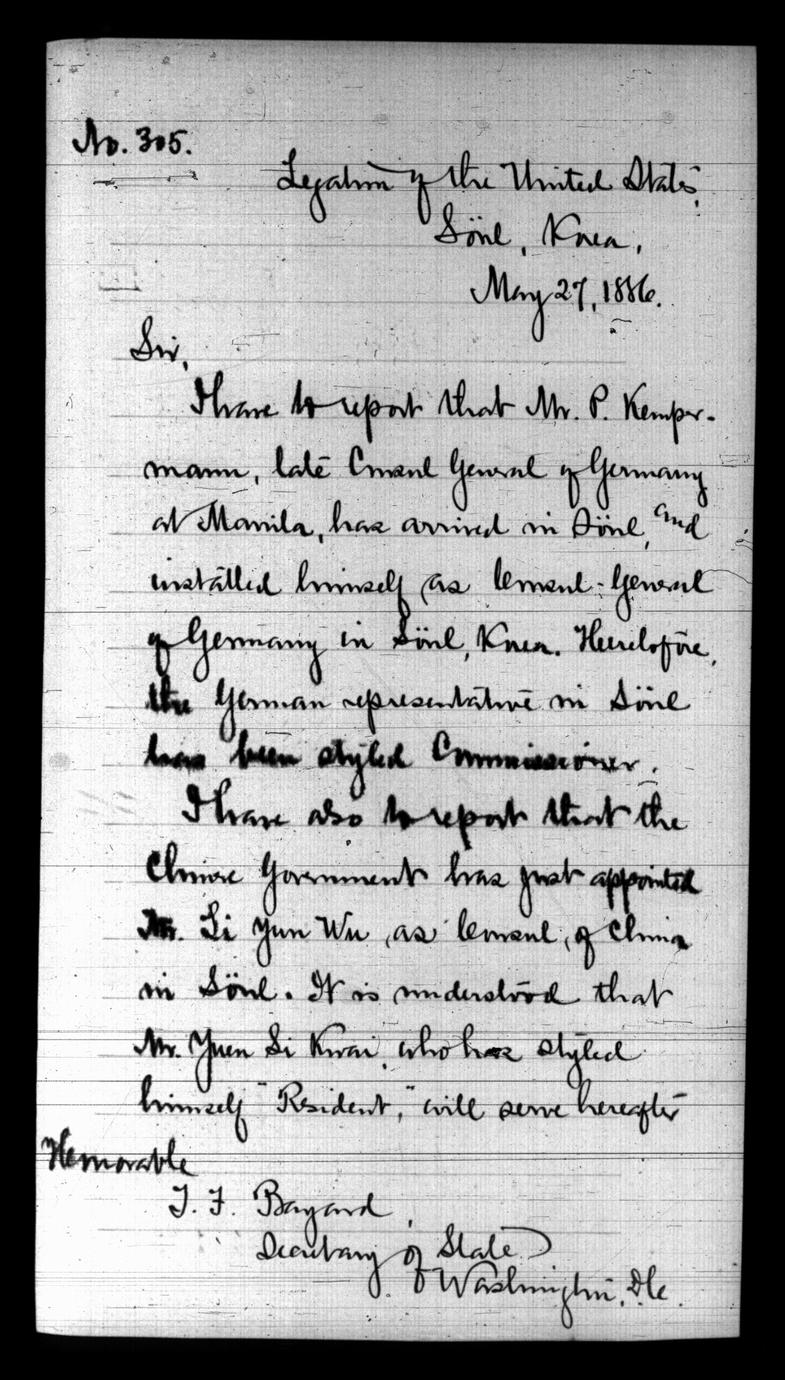 No. 305.
Legation of the United States,
Söul, Korea,
May 27, 1886.
Sir,
I have to report that Mr. P. Kemper-
mann, late Consul General of Germany
at Manila, has arrived in Söul, and
installed himself as Consul-General
of Germany in Söul, Korea. Heretofore,
the German representative in Söul
has been styled Commissioner.
I have also to report that the
Chinese Government has just appointed
Mr. Li Yun Wu, as Consul, of China
in Söul. It is understood that
Mr. Yuen Si Kwai, who has styled
himself "Resident," will serve hereafter
Honorable
T. F. Bayard,
Secretary of State
Washington, D.C.